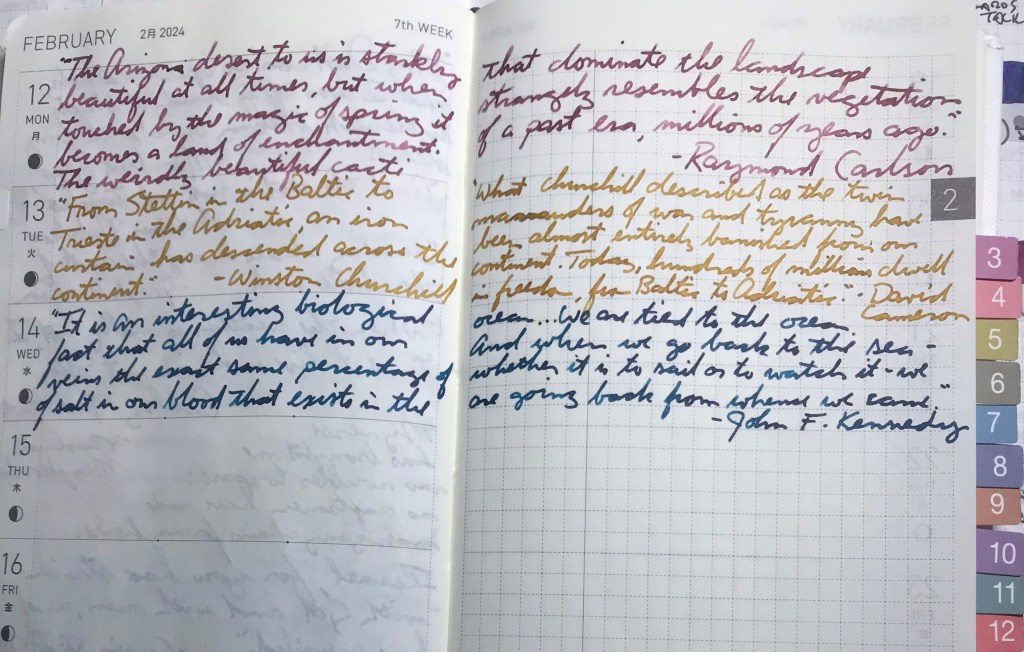 FEBRUARY 2月 2024 7th WEEK
12 MON 月
"The Arizona desert to us is starkly
beautiful at all times, but when
touched by the magic of spring it
becomes a land of enchantment.
The weirdly beautiful cacti
that dominate the landscape
strangely resembles the vegetation
of a past era, millions of years ago."
-Raymond Carlson
13 TUE 火
"From Stettin in the Baltic to
Trieste in the Adriatic an iron
curtain has descended across the
continent." -Winston Churchill
"What Churchill described as the twin
marauders of war and tyranny have
been almost entirely banished from our
continent. Today, hundreds of millions dwell
in freedom, from Baltic to Adriatic." - David
Cameron
14 WED 水
"It is an interesting biological
fact that all of us have in our
veins the exact same percentage of
of salt in our blood that exists in the
ocean... We are tied to the ocean.
And when we go back to the sea -
whether it is to sail or to watch it - we
are going back from whence we came."
-John F. Kennedy
15 THU 木
16 FRI 金
2
3
4
5
6
7
8
9
10
11
12
TALK